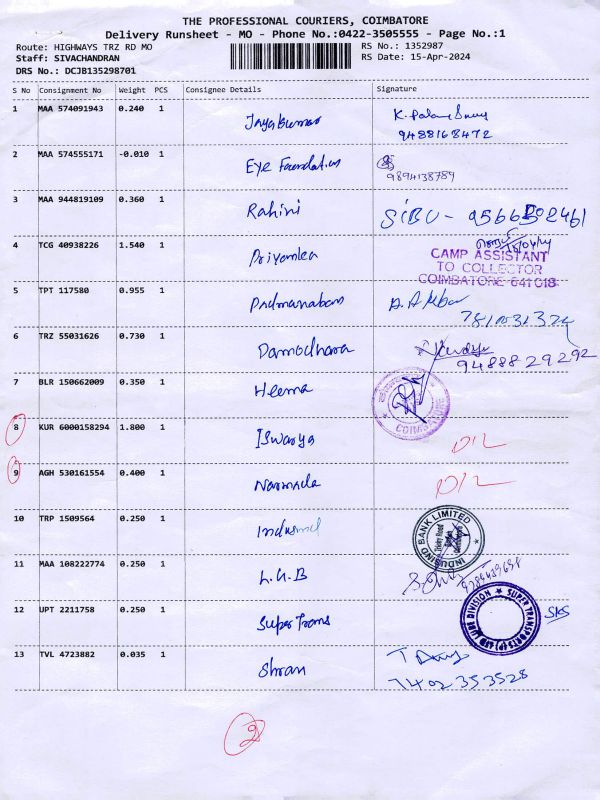 THE PROFESSIONAL COURIERS, COIMBATORE
Delivery Runsheet - MO - Phone No.:0422-3505555 - Page No.:1
Route: HIGHWAYS TRZ RD MO
RS No.: 1352987
Staff: SIVACHANDRAN
RS Date: 15-Apr-2024
DRS No.: DCJB135298701
S No Consignment No Weight PCS Consignee Details Signature
1 MAA 574091943 0.240 1 Jayakumar
9488168472
2 MAA 574555171 -0.010 1 Eye Foundation
9894138789
3 MAA 944819109 0.360 1 Rahini SIBU -
4 TCG 40938226 1.540 1 Priyanka
CAMP ASSISTANT
TO COLLECTOR
COIMBATORE 641 018
5 TPT 117580 0.955 1 Padmanaban
6 TRZ 55031626 0.730 1 Damodhara
9488829292
7 BLR 150662009 0.350 1 Heema
COIMBATORE
8 KUR 6000158294 1.800 1 Iswarya D/L
9 AGH 530161554 0.400 1 Narmada D/L
10 TRP 1509564 0.250 1 Indusind
INDUSIND BANK LIMITED
11 MAA 108222774 0.250 1 L.G.B
12 UPT 2211758 0.250 1 Super Trans
SUPER TRANSPORTS (P) LTD DIVISION
SKS
13 TVL 4723882 0.035 1 Shran
7402353528
2